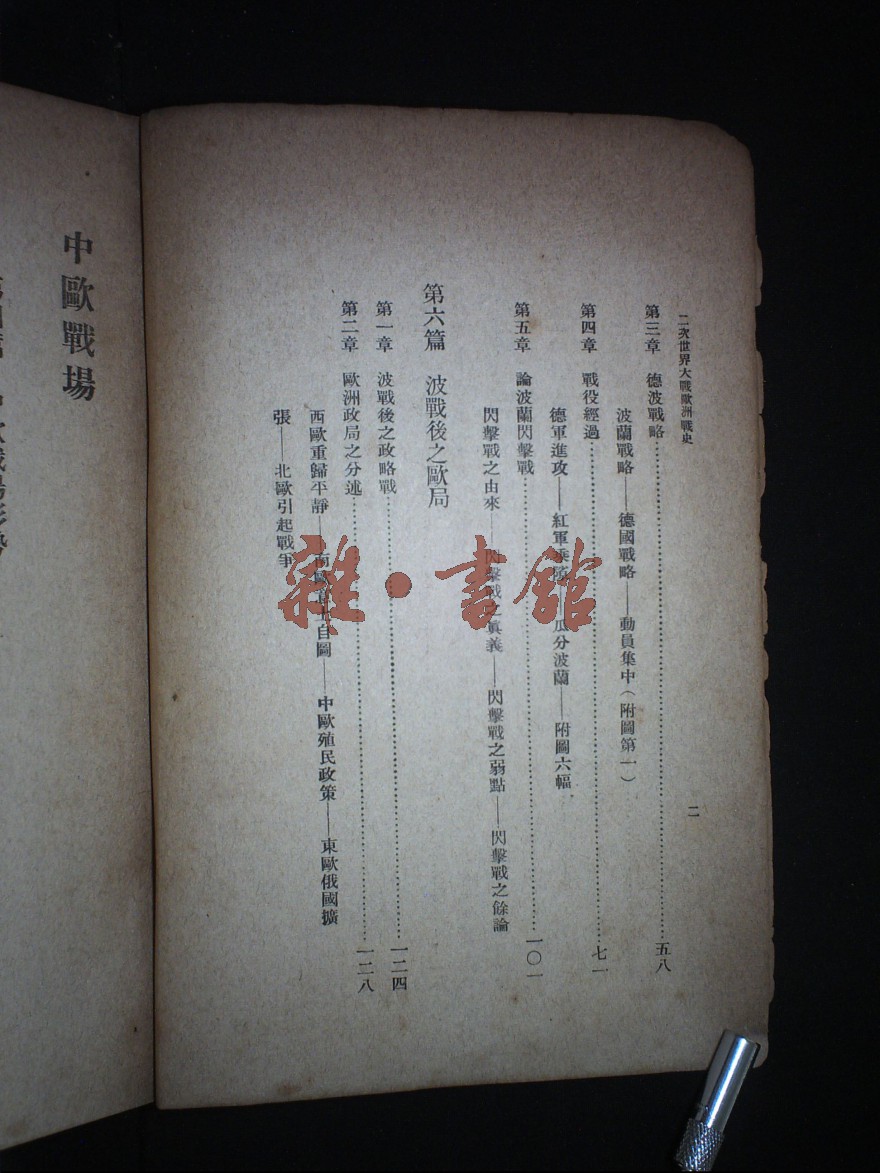 二次世界大戰歐洲戰史
二
第三章 德波戰略……五八
波蘭戰略——德國戰略——動員集中(附圖第一)
第四章 戰役經過……七一
德軍進攻——紅軍 瓜分波蘭——附圖六幅
第五章 論波蘭閃擊戰……一〇一
閃擊戰之由來——閃擊戰之眞義——閃擊戰之弱點——閃擊戰之餘論
第六篇 波戰後之歐局
第一章 波戰後之政略戰……一二四
第二章 歐洲政局之分述……一二八
西歐重歸平靜——南歐 自圖——中歐殖民政策——東歐俄國擴
張——北歐引起戰爭
中歐戰場
雜·書館